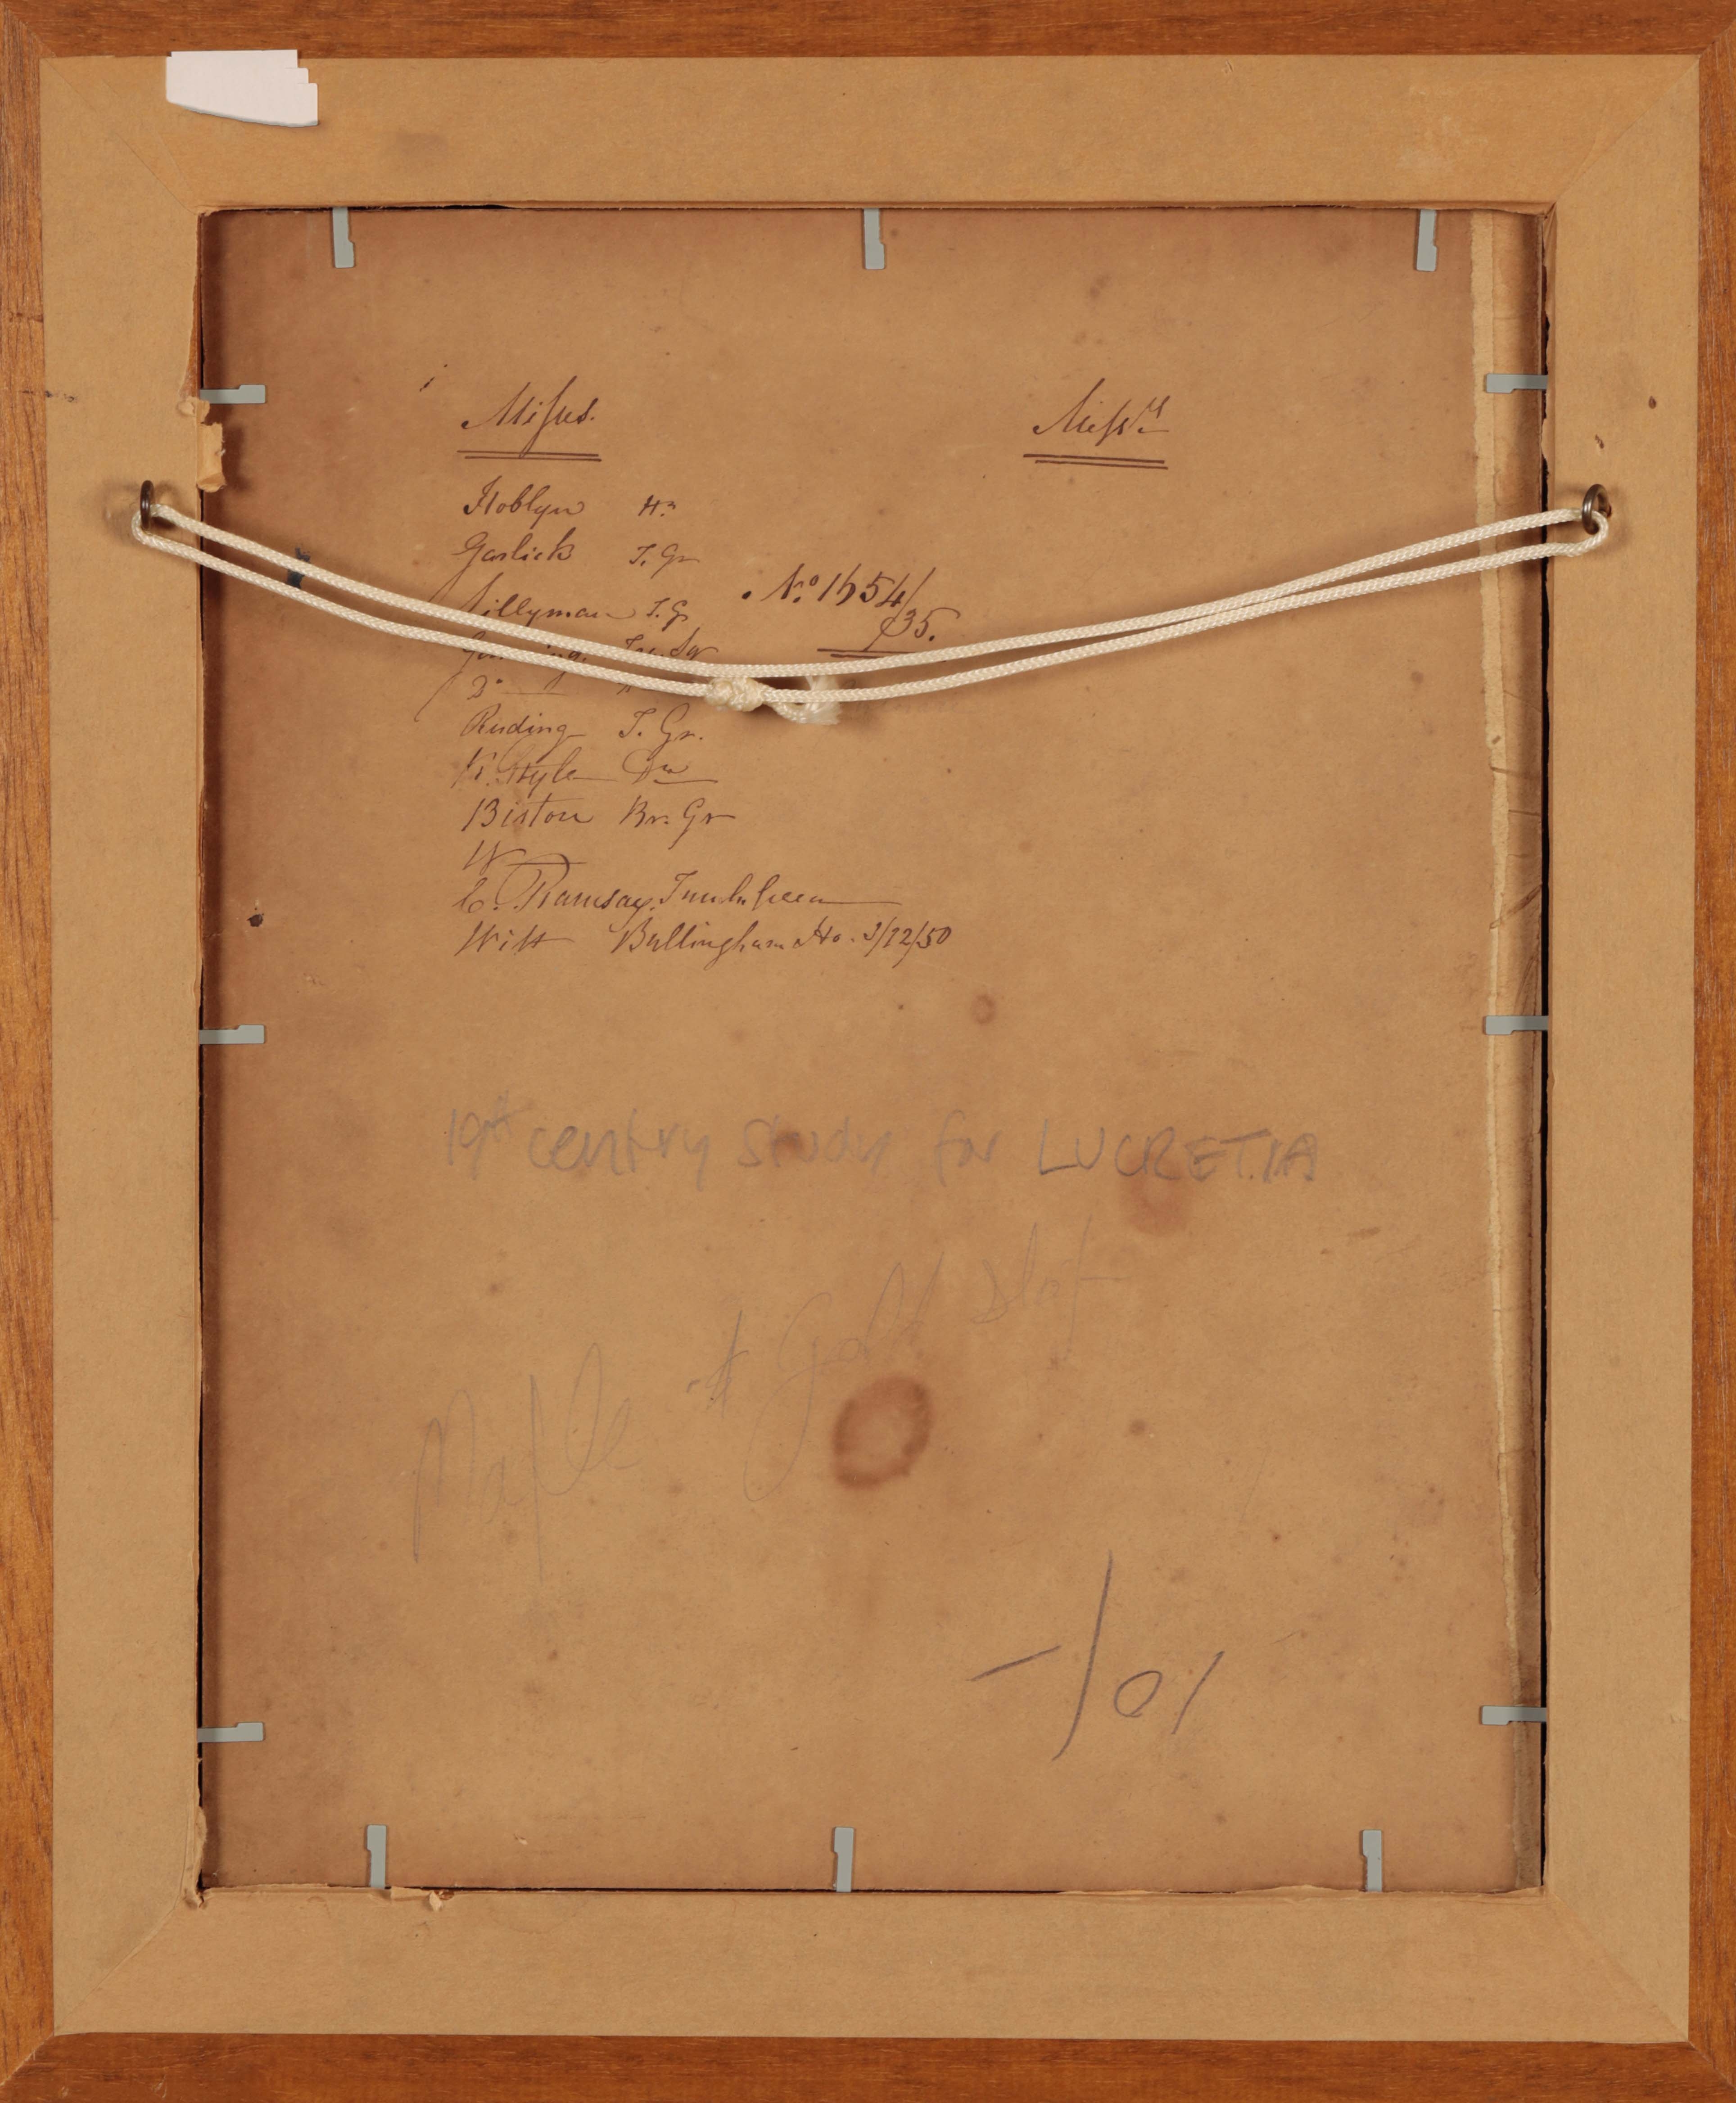 Misses.
Messrs
Hoblyn H.
Garlick T. Gr
Sillyman T. Gr
No. 1654/
35.
Do
Ruding T. Gr.
Style
Biston Br. Gr
W
C. Ramsay
Witt Bullingham Ho. 3/12/50
19th centry study for LUCRETIA
Maple & Gold Slip
-/01